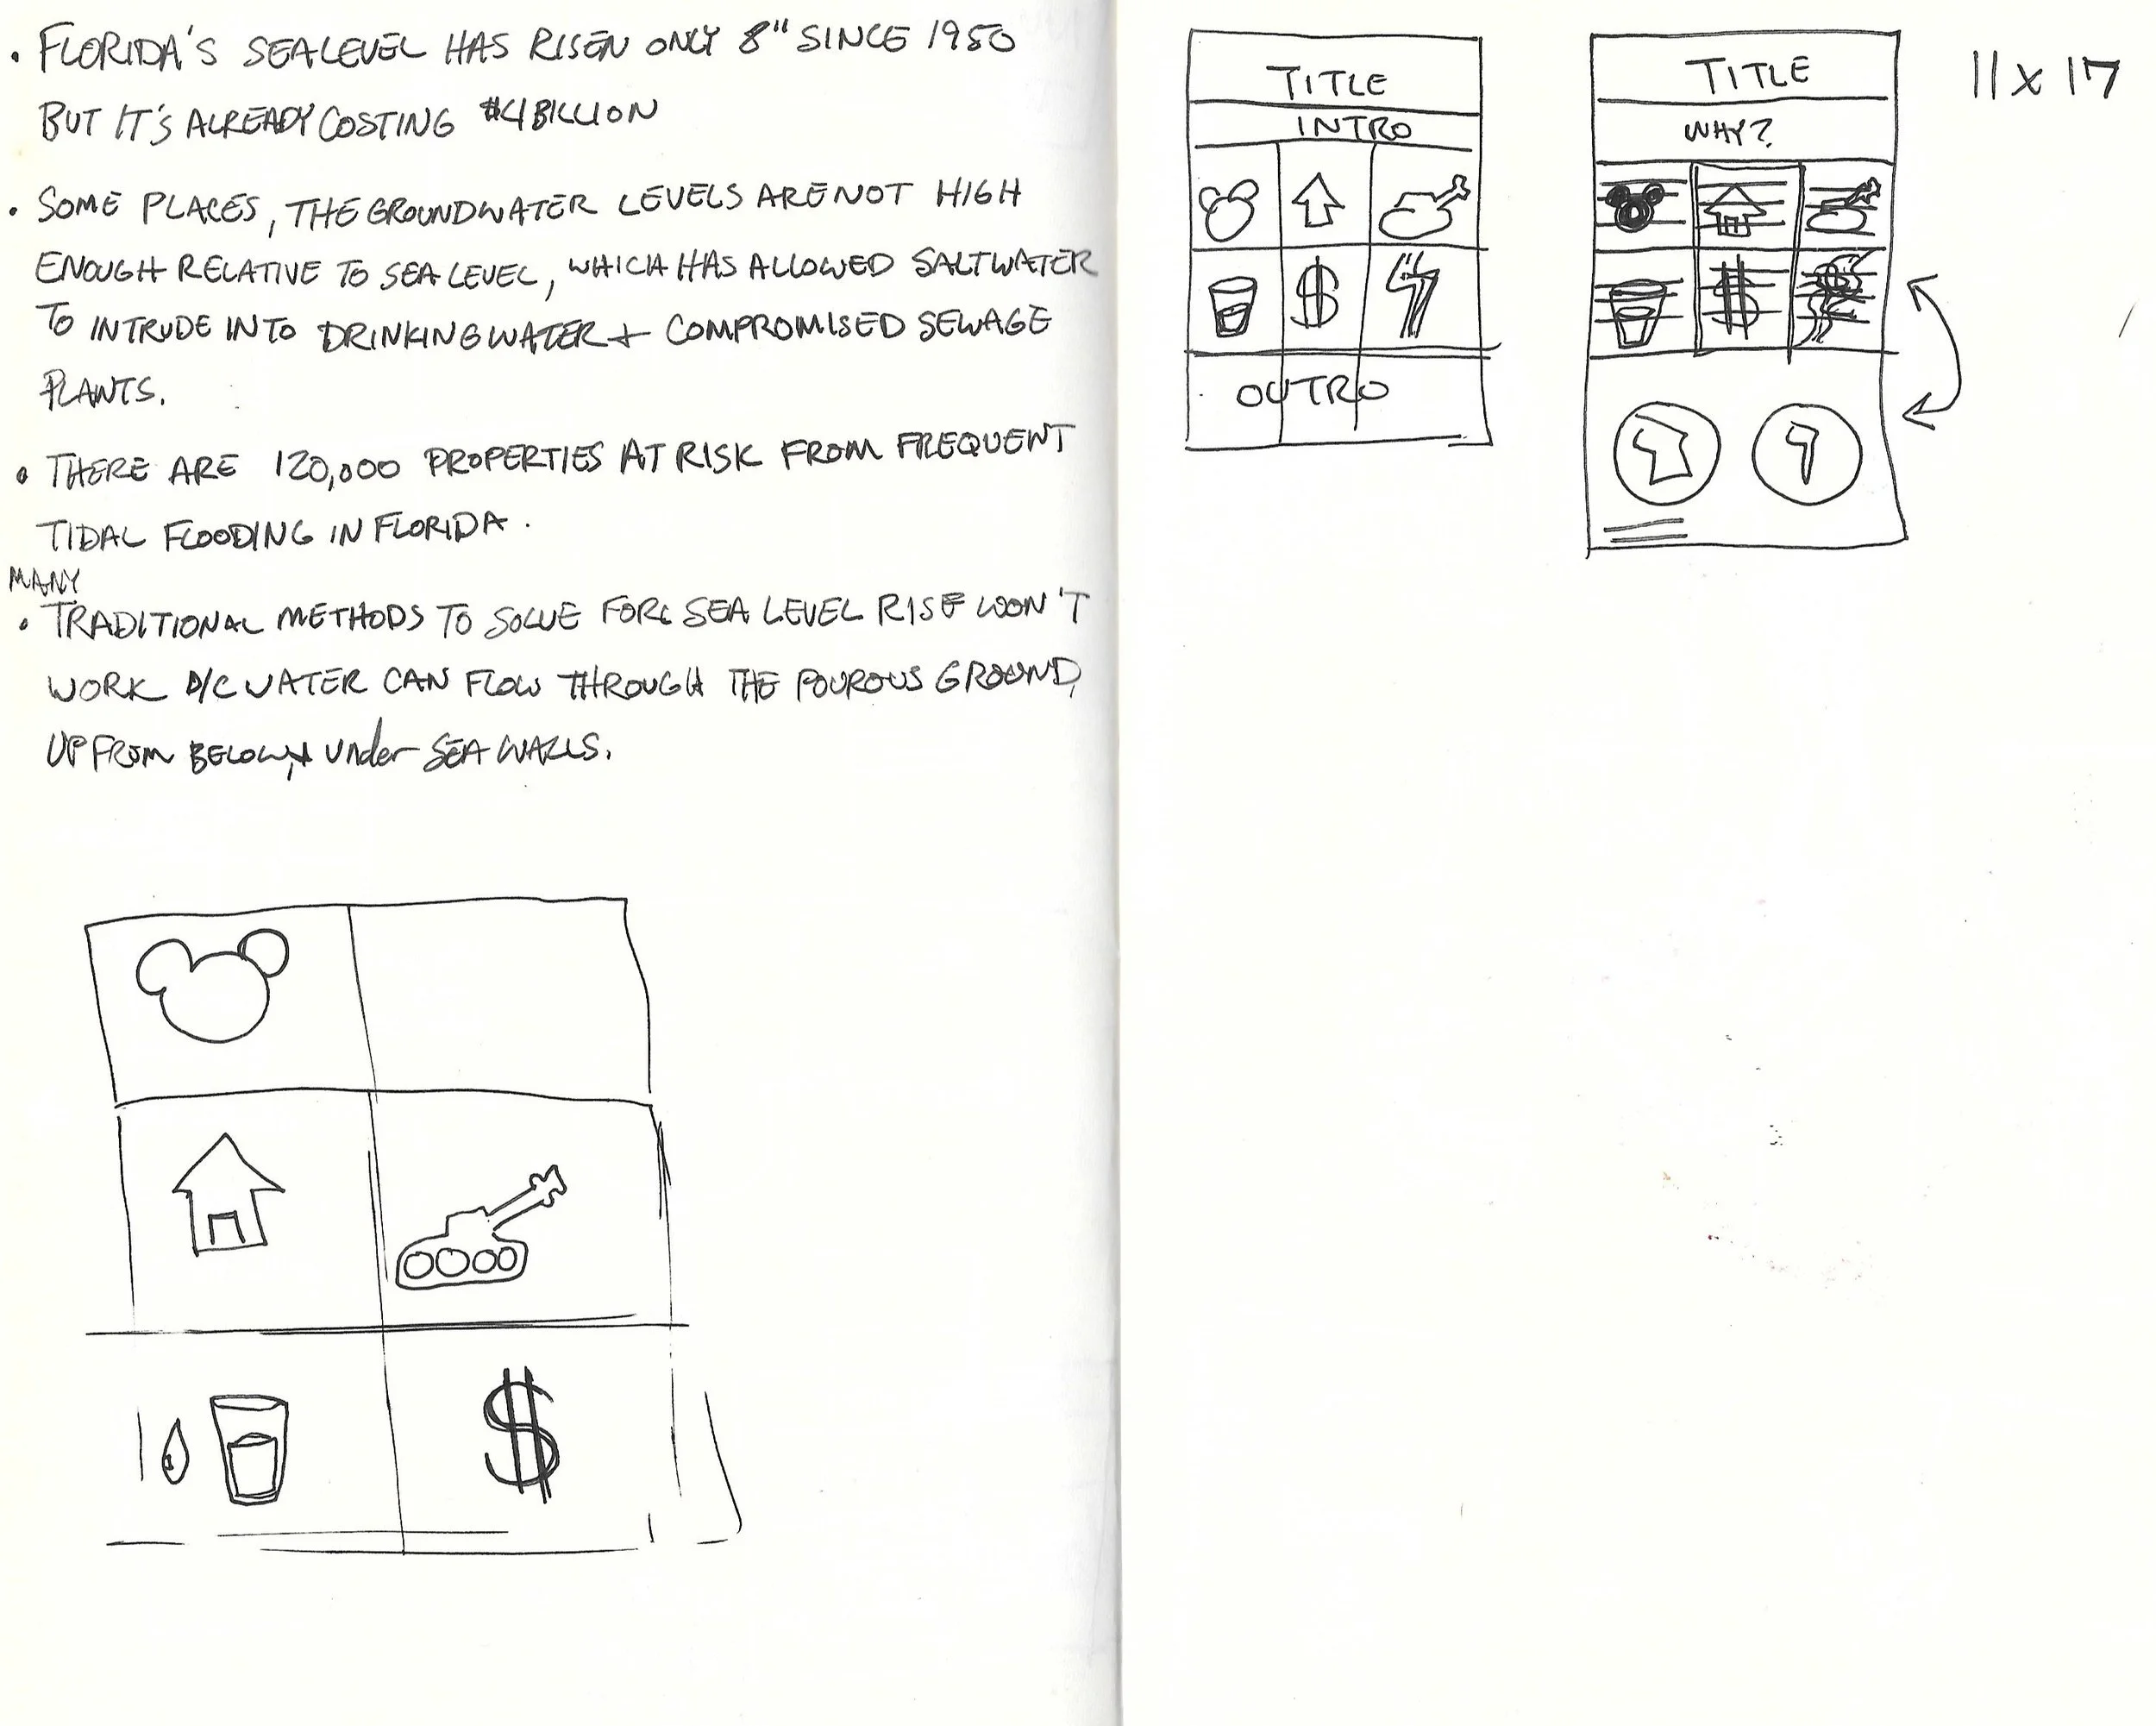 • FLORIDA'S SEALEVEL HAS RISEN ONLY 8" SINCE 1950
BUT IT'S ALREADY COSTING $4 BILLION
• SOME PLACES, THE GROUNDWATER LEVELS ARE NOT HIGH
ENOUGH RELATIVE TO SEA LEVEL, WHICH HAS ALLOWED SALTWATER
TO INTRUDE INTO DRINKING WATER + COMPROMISED SEWAGE
PLANTS.
• THERE ARE 120,000 PROPERTIES AT RISK FROM FREQUENT
TIDAL FLOODING IN FLORIDA.
MANY
• TRADITIONAL METHODS TO SOLVE FOR SEA LEVEL RISE WON'T
WORK B/C WATER CAN FLOW THROUGH THE POUROUS GROUND,
UP FROM BELOW, + Under SEA WALLS.
$
TITLE
INTRO
$
OUTRO
TITLE
WHY?
$
11 x 17